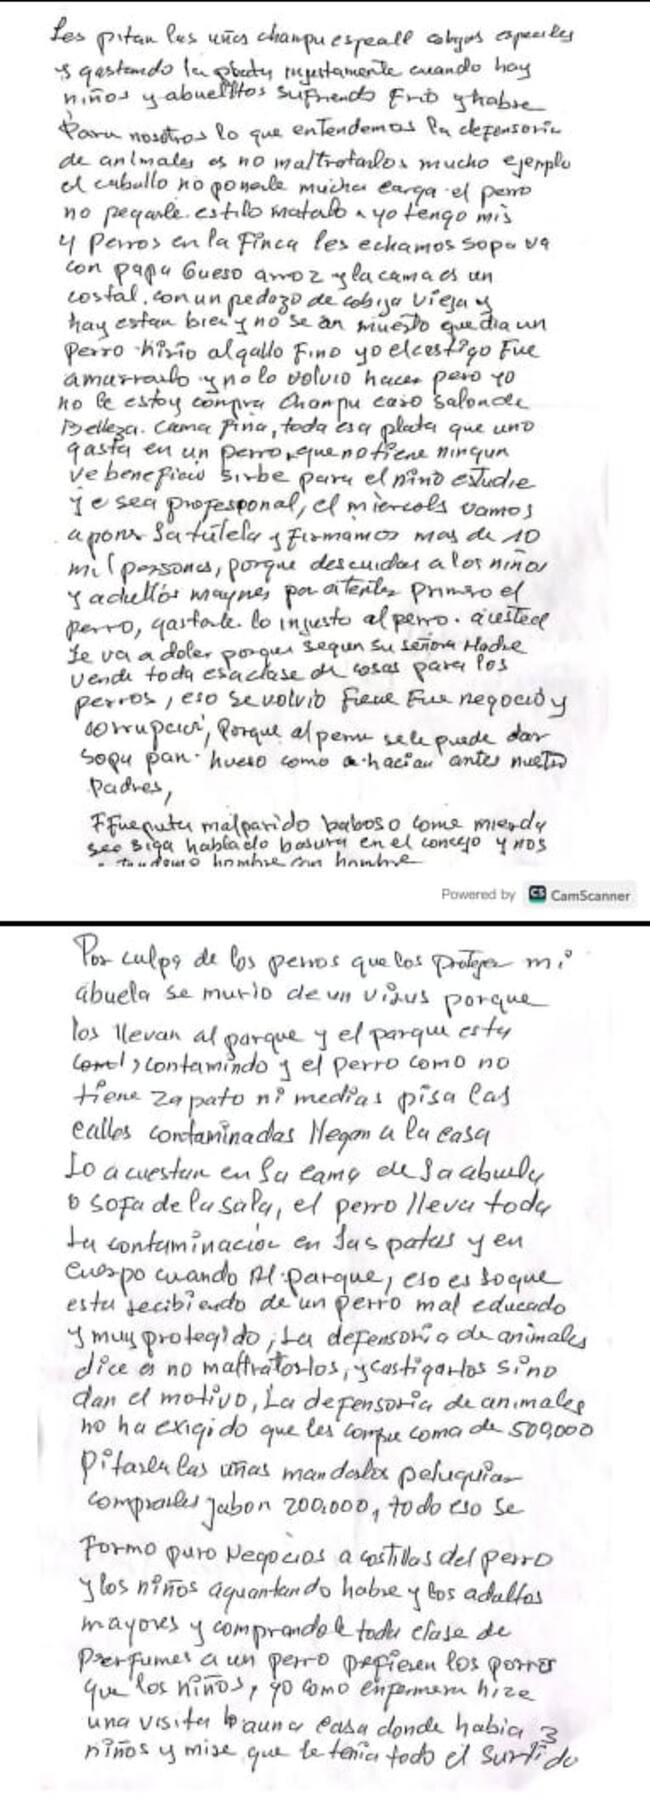 Les pitan las uñas champu espeall cobijas especiles
y gastando la plata injustamente cuando hay
niños y abuelitos sufriendo frio y habre
Para nosotros lo que entendemos la defensoria
de animales es no maltratarlos mucho ejemplo
el caballo no ponerle mucha carga el perro
no pegarle estilo matalo yo tengo mis
4 perros en la Finca les echamos sopa va
con papa Gueso arroz y la cama es un
costal, con un pedazo de cobija vieja y
hay estan bien y no se an muerto que dia un
perro hirio al gallo Fino yo el castigo Fue
amarrarlo y no lo volvio hacer pero yo
no le estoy compra champu caro salon de
Belleza. cama fina, toda esa plata que uno
gasta en un perro, que no tiene ningun
ve beneficio sirbe para el niño estudie
y e sea profesponal, el miercols vamos
a poner la tutela y firmamos mas de 10
mil personas, porque descuidar a los niños
y mayres por atender primero el
perro, gastarle lo injusto al perro. a usted
Le va a doler porque segun su señora Madre
vende toda esa clase de cosas para los
perros, eso se volvio Fue negocio y
corrupcion, Porque al perro se le puede dar
sopa pan hueso como hacian antes nuetro
Padres,
malparido baboso come mierda
siga hablado basura en el concejo y nos
hombre con hombre
Powered by CS CamScanner
Por culpa de los perros que los protejer mi
abuela se murio de un virus porque
los llevan al parque y el parque esta
contamindo y el perro como no
tiene zapato ni medias pisa las
calles contaminadas llegan a la casa
Lo acuestan en la cama de la abuela
o sofa de la sala, el perro lleva toda
La contaminación en las patas y en
cuerpo cuando Al parque, eso es lo que
esta recibiendo de un perro mal educado
y muy protegido, La defensoria de animales
dice es no maltratarlos, y castigarlos sino
dan el motivo, La defensoria de animales
no ha exigido que les compre coma de 500,000
Pitarle las uñas mandarlos peluquiar
comprarles jabon 200.000, todo eso se
Formo puro Negocios a costillas del perro
y los niños aguantando habre y los adultos
mayores y comprandole toda clase de
perfumes a un perro prefieren los porros
que los niños, yo como enfermera hize
una visita a una casa donde habia 3
niños y mire que le tenia todo el surtido